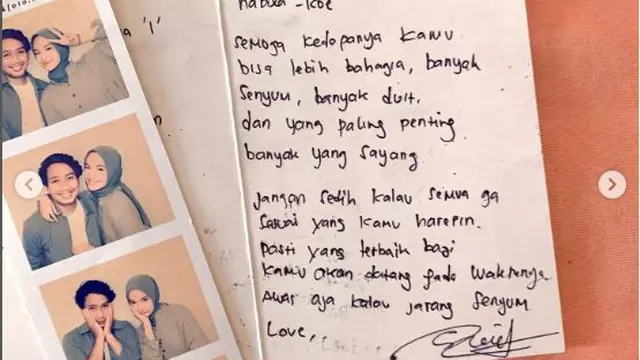 semoga kedepanya kamu
bisa lebih bahagia, banyak
senyum, banyak duit,
dan yang paling penting
banyak yang sayang
jangan sedih kalau semua ga
sesuai yang kamu harepin.
pasti yang terbaik bagi
kamu akan datang pada waktunya
awas aja kalau jarang senyum
Love,